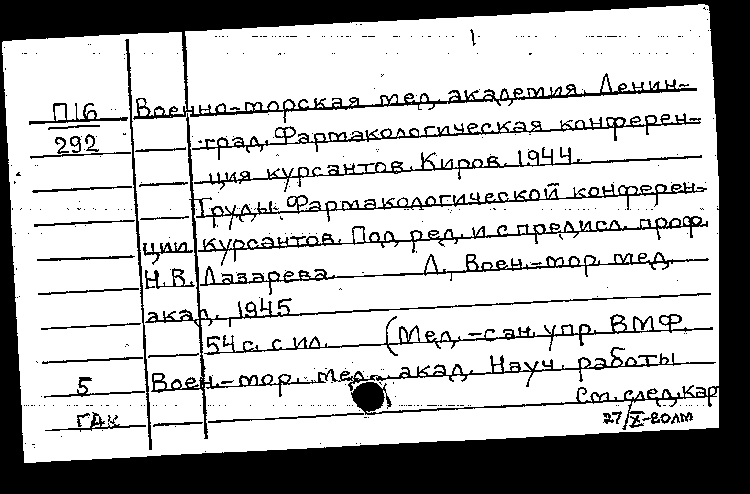 1
П16 Военно-морская мед. академия. Ленин-
292 град. Фармакологическая конферен-
ция курсантов. Киров. 1944.
Труды Фармакологической конферен-
ции курсантов. Под ред. и с предисл. проф.
Н.В. Лазарева Л., Воен.-мор. мед.
акад., 1945
54 с. с ил. (Мед.-сан. упр. ВМФ.
5 Воен.-мор. мед. акад. Науч. работы
См. след. кар
ГАК 27/X-80